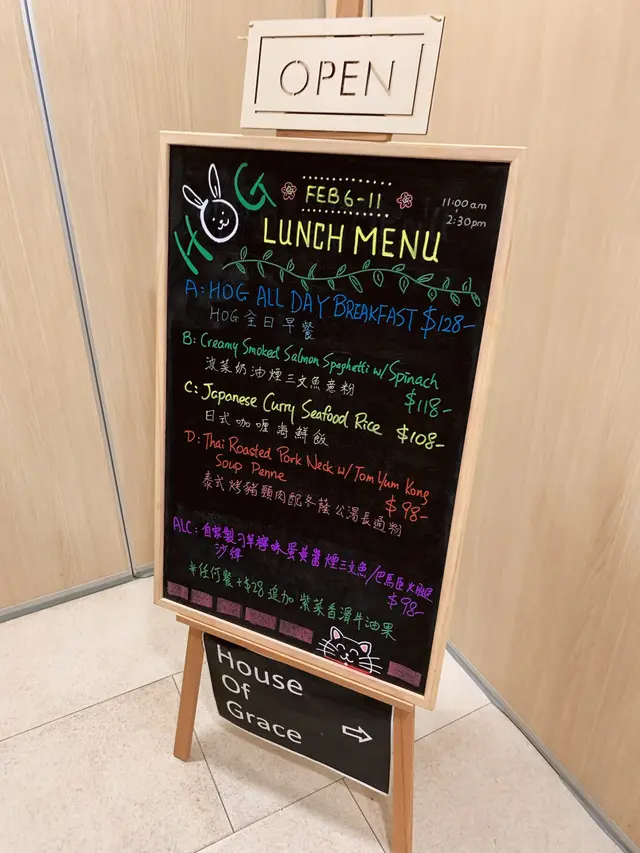 OPEN
HOG
FEB 6-11
11:00 am
2:30pm
LUNCH MENU
A: HOG ALL DAY BREAKFAST $128-
HOG 全日早餐
B: Creamy Smoked Salmon Spaghetti w/ Spinach
菠菜奶油煙三文魚意粉 $118-
C: Japanese Curry Seafood Rice $108-
日式咖喱海鮮飯
D: Thai Roasted Pork Neck w/ Tom Yum Kong
Soup Penne $98-
泰式烤豬頸肉配冬蔭公湯長通粉
ALC: 自家製 檸味蛋黃醬煙三文魚/巴馬臣火腿
沙律 $98-
*任何餐+$28 追加 紫菜香滑牛油果
House
Of
Grace